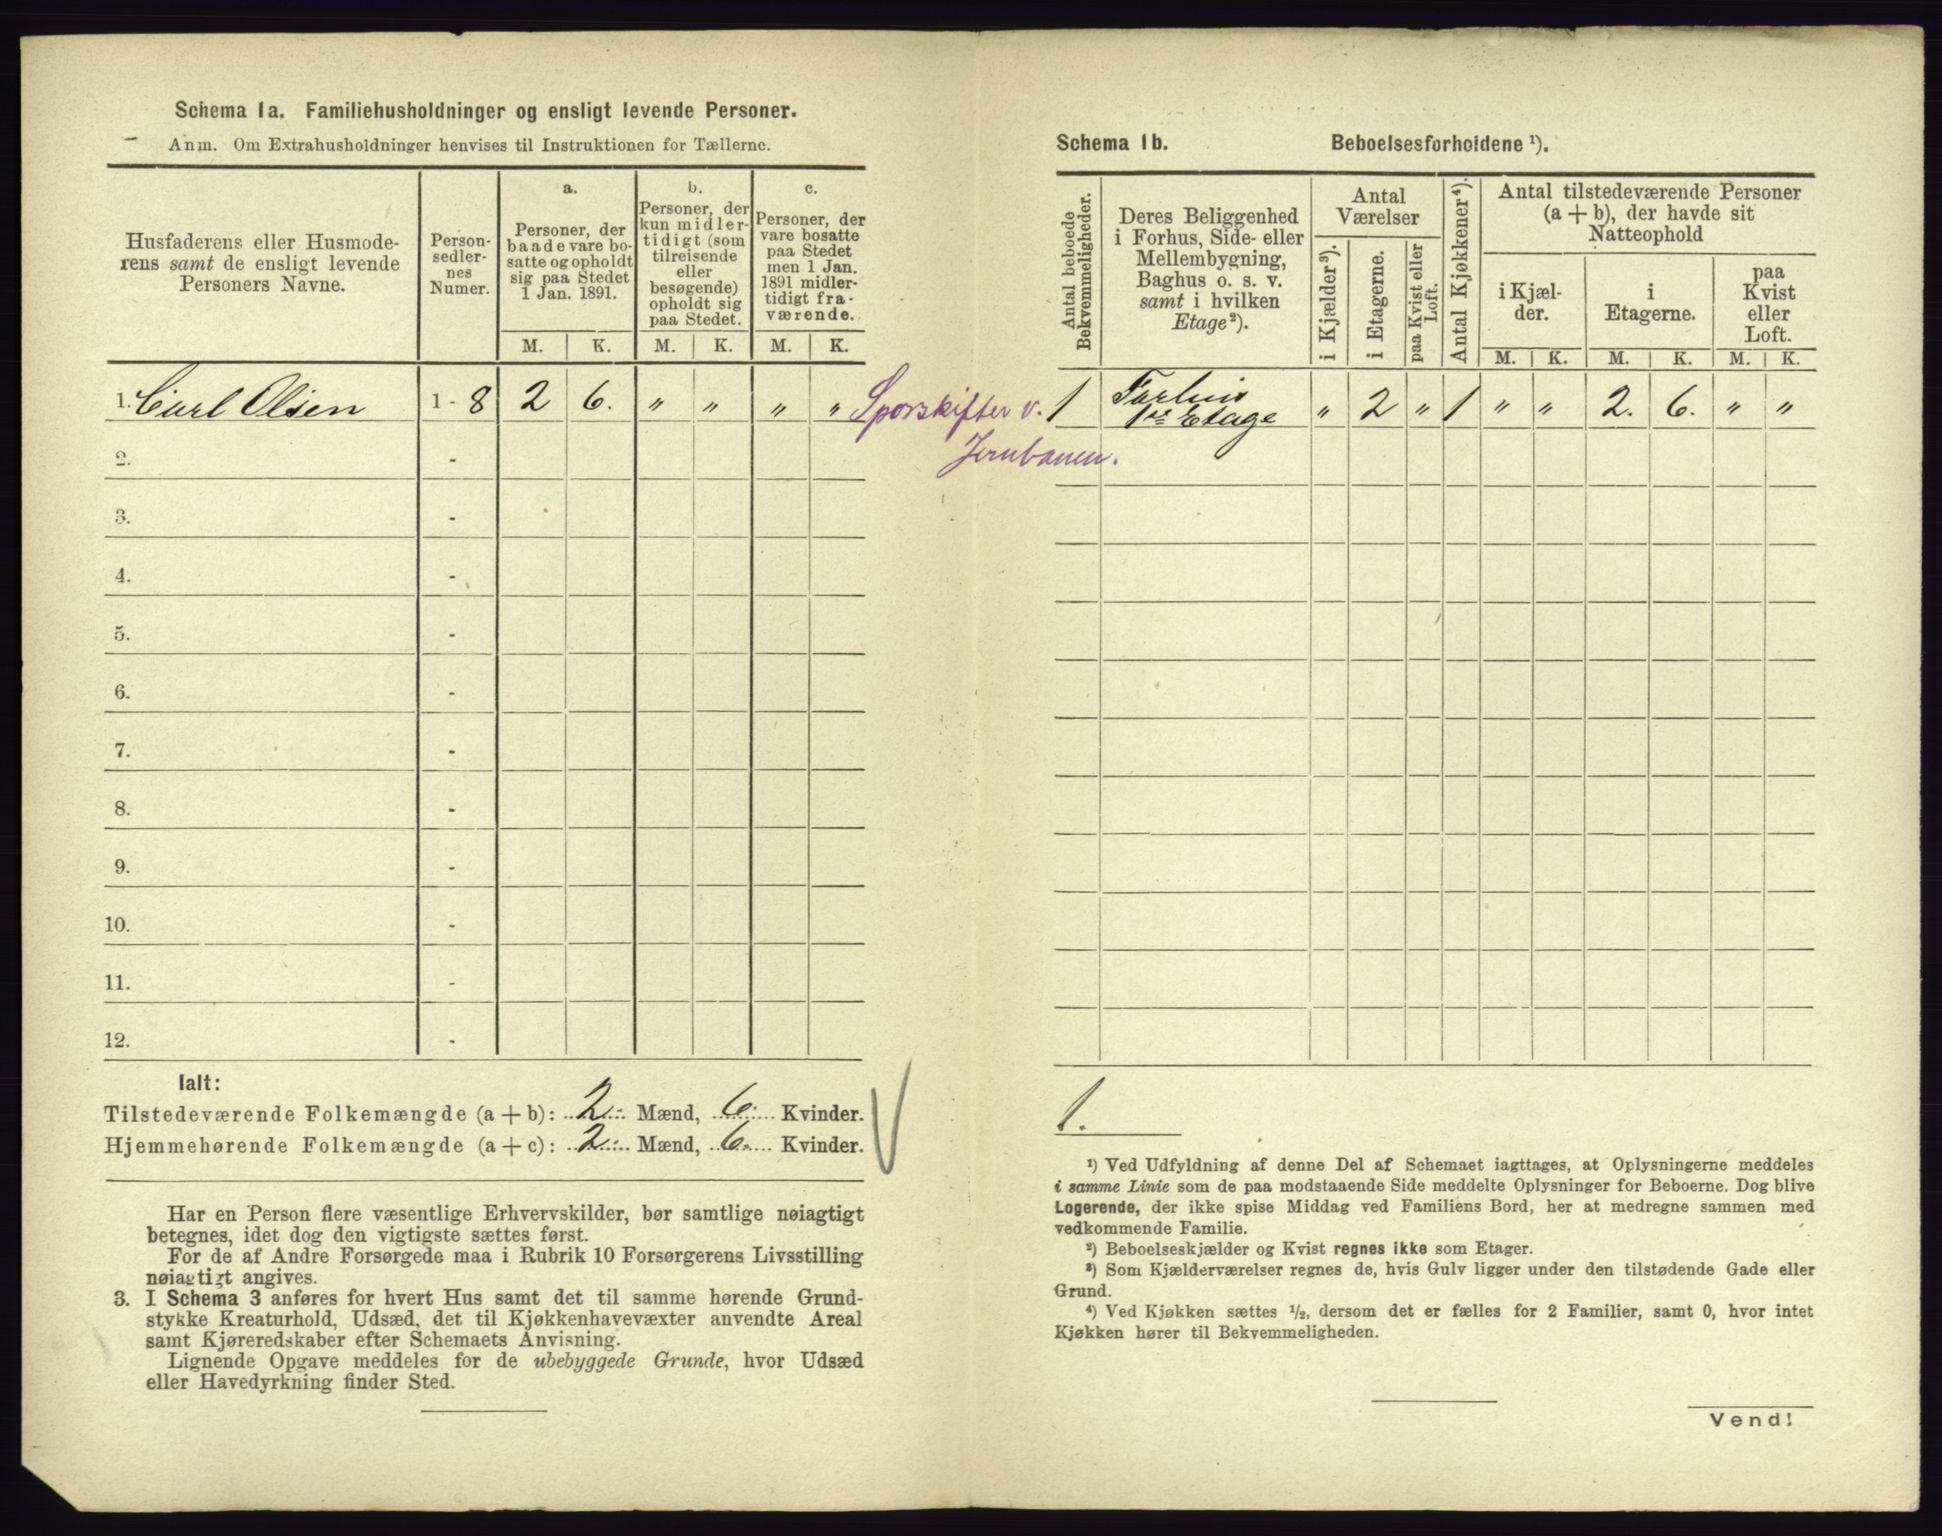 Schema 1a. Familiehusholdninger og ensligt levende Personer.
Anm. Om Extrahusholdninger henvises til Instruktionen for Tællerne.
Husfaderens eller Husmode-
rens samt de ensligt levende
Personers Navne.
Person-
sedler-
nes
Numer.
a.
Personer, der
baade vare bo-
satte og opholdt
sig paa Stedet
1 Jan. 1891.
b.
Personer, der
kun midler-
tidigt (som
tilreisende
eller
besøgende)
opholdt sig
paa Stedet.
c.
Personer, der
vare bosatte
paa Stedet
men 1 Jan.
1891 midler-
tidigt fra-
værende.
M. K. M. K. M. K.
1. Carl Olsen 1 - 8 2 6. " " " " Sporskifter v.
Jernbanen.
2. -
3. -
4. -
5. -
6. -
7. -
8. -
9. -
10. -
11. -
12. -
Ialt:
Tilstedeværende Folkemængde (a + b): 2 Mænd, 6 Kvinder.
Hjemmehørende Folkemængde (a + c): 2 Mænd, 6 Kvinder.
Har en Person flere væsentlige Erhvervskilder, bør samtlige nøiagtigt
betegnes, idet dog den vigtigste sættes først.
For de af Andre Forsørgede maa i Rubrik 10 Forsørgerens Livsstilling
nøiagtigt angives.
3. I Schema 3 anføres for hvert Hus samt det til samme hørende Grund-
stykke Kreaturhold, Udsæd, det til Kjøkkenhavevæxter anvendte Areal
samt Kjøreredskaber efter Schemaets Anvisning.
Lignende Opgave meddeles for de ubebyggede Grunde, hvor Udsæd
eller Havedyrkning finder Sted.
Schema 1b. Beboelsesforholdene ¹).
Antal beboede
Bekvemmeligheder.
Deres Beliggenhed
i Forhus, Side- eller
Mellembygning,
Baghus o. s. v.
samt i hvilken
Etage ²).
Antal
Værelser
i Kjælder ³).
i Etagerne.
paa Kvist eller
Loft.
Antal Kjøkkener ⁴).
Antal tilstedeværende Personer
(a + b), der havde sit
Natteophold
i Kjæl-
der.
i
Etagerne.
paa
Kvist
eller
Loft.
M. K. M. K. M. K.
1 Forhus
1ste Etage " 2 " 1 " " 2. 6. " "
1.
¹) Ved Udfyldning af denne Del af Schemaet iagttages, at Oplysningerne meddeles
i samme Linie som de paa modstaaende Side meddelte Oplysninger for Beboerne. Dog blive
Logerende, der ikke spise Middag ved Familiens Bord, her at medregne sammen med
vedkommende Familie.
²) Beboelseskjælder og Kvist regnes ikke som Etager.
³) Som Kjælderværelser regnes de, hvis Gulv ligger under den tilstødende Gade eller
Grund.
⁴) Ved Kjøkken sættes ½, dersom det er fælles for 2 Familier, samt 0, hvor intet
Kjøkken hører til Bekvemmeligheden.
Vend!